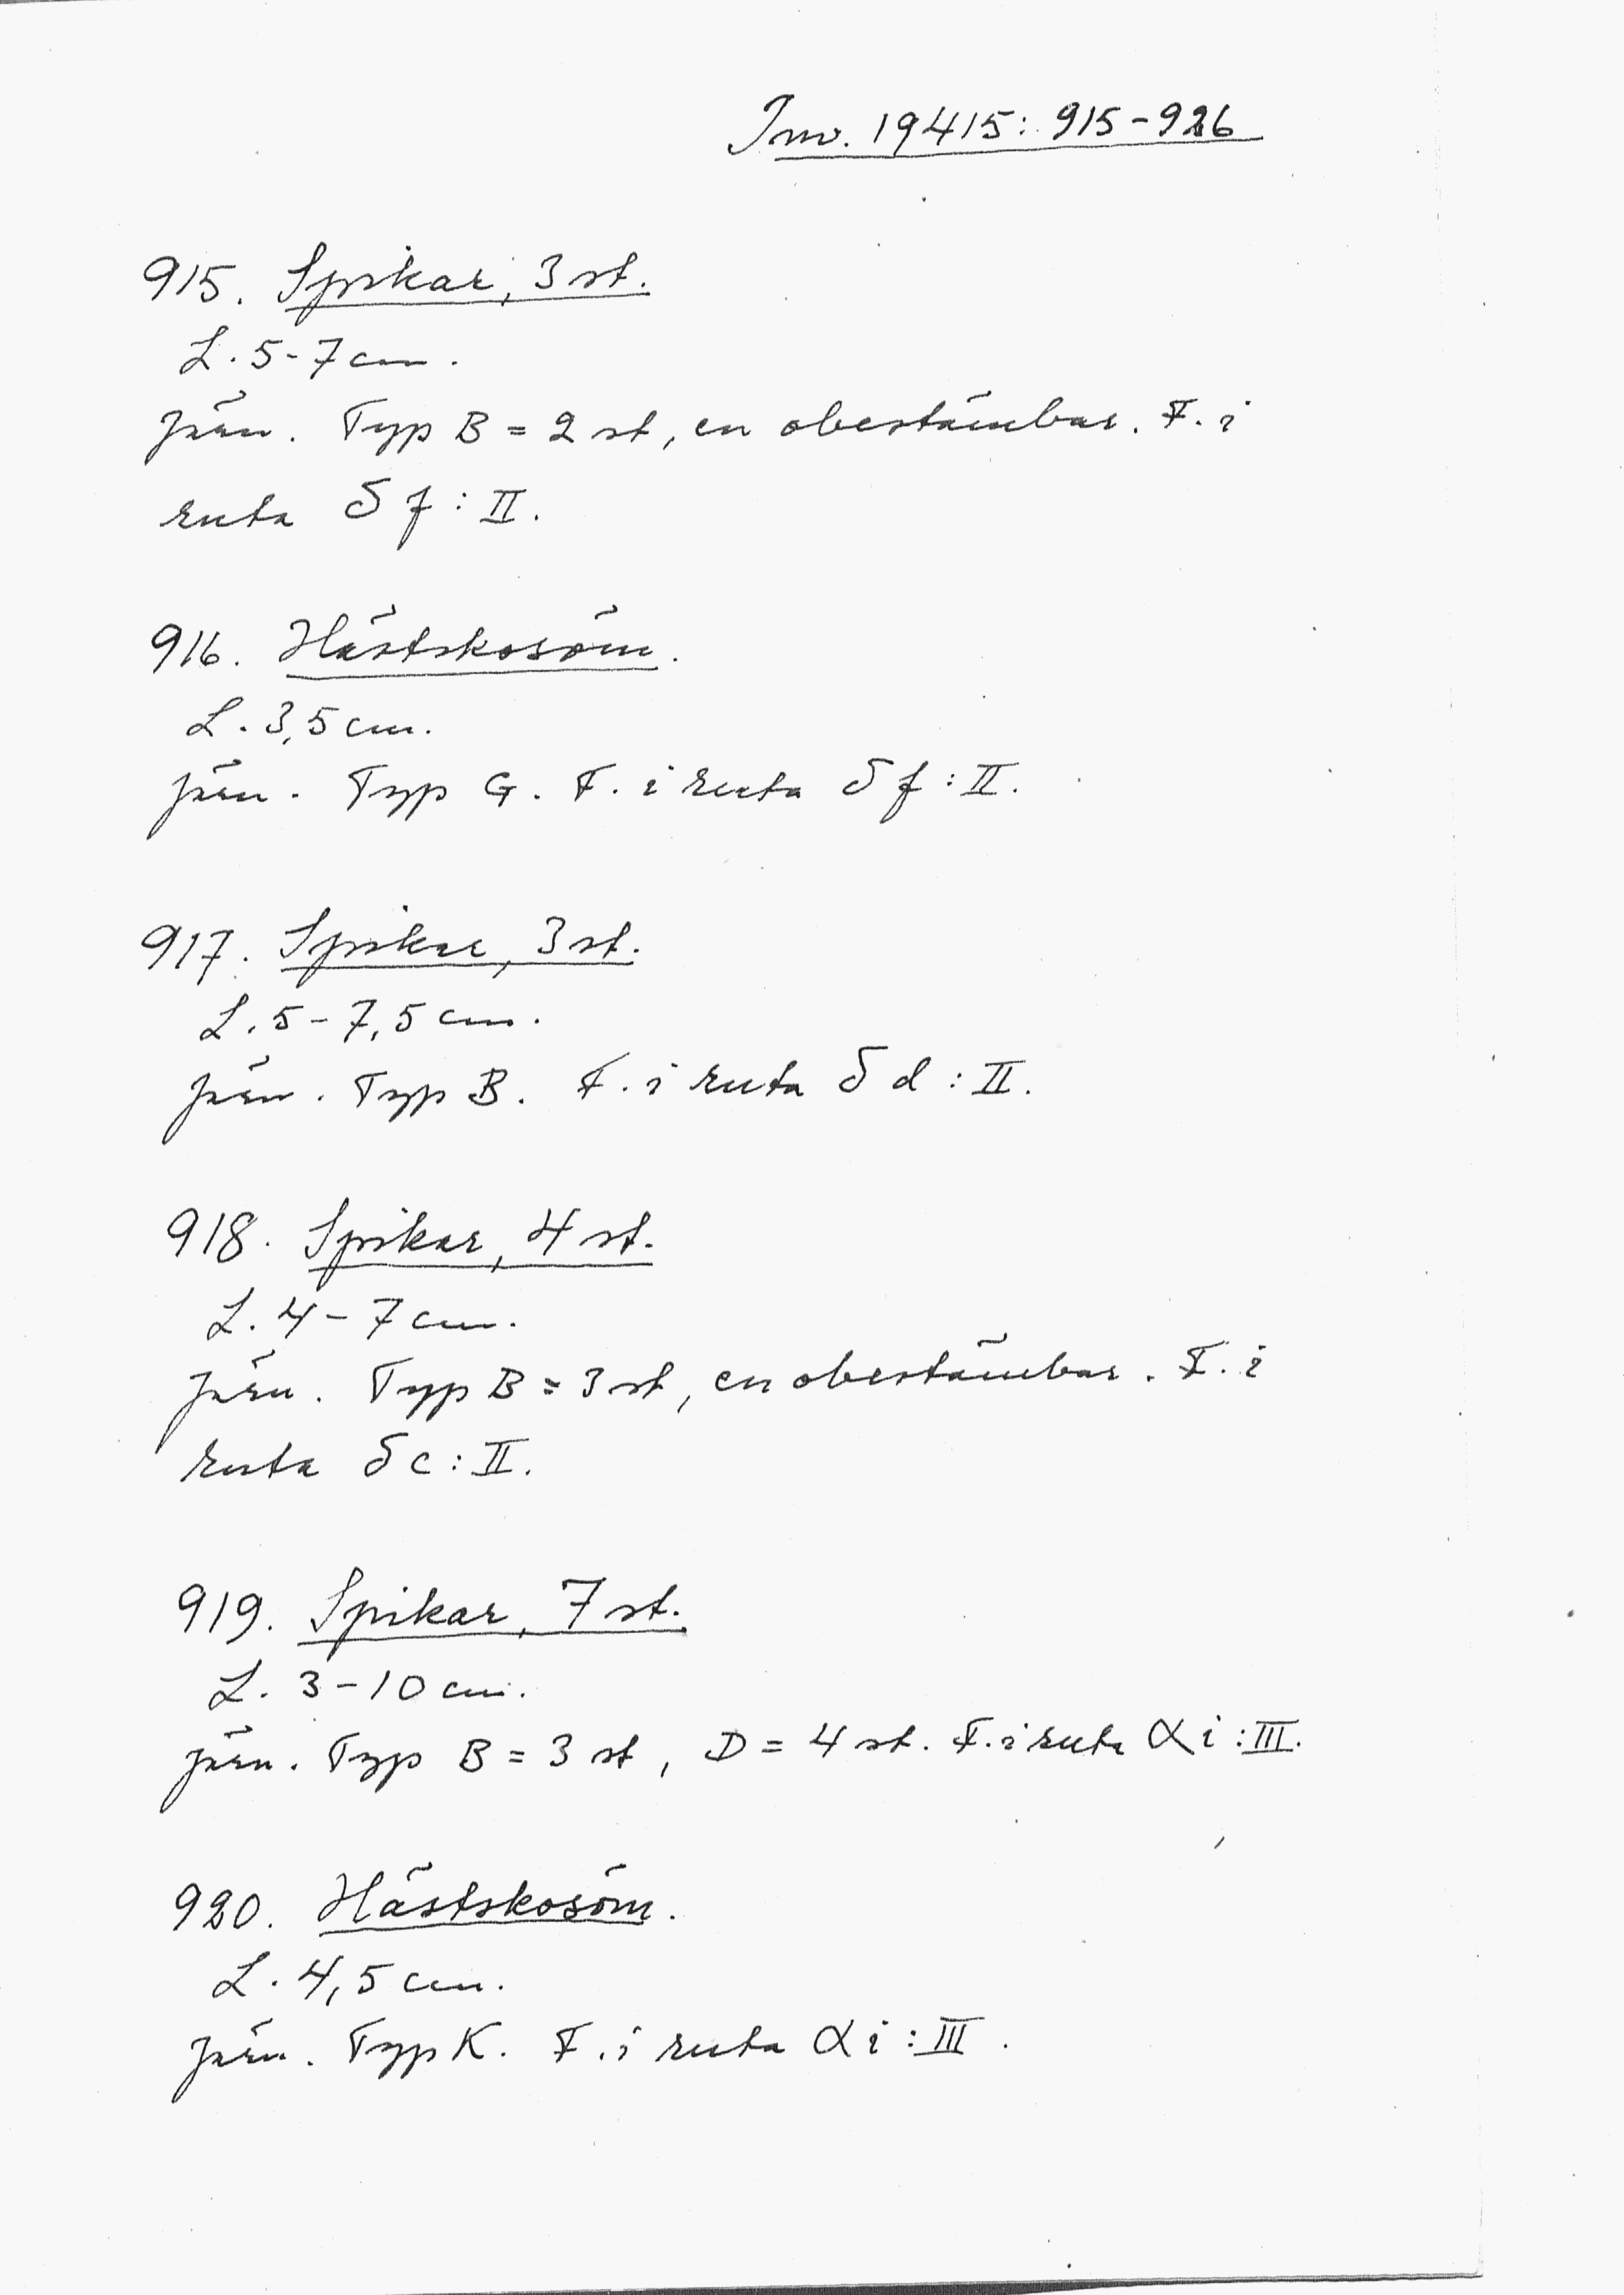 Inv. 19415: 915-926
915. Spikar, 3 st.
L. 5-7 cm.
Järn. Typ B = 2 st, en obestämbar. F. i
ruta δ f : II.
916. Hästskosöm.
L. 3,5 cm.
Järn. Typ G. F. i ruta δ f : II.
917. Spikar, 3 st.
L. 5-7,5 cm.
Järn. Typ B. F. i ruta δ d : II.
918. Spikar, 4 st.
L. 4-7 cm.
Järn. Typ B = 3 st, en obestämbar. F. i
ruta δ c : II.
919. Spikar, 7 st.
L. 3-10 cm.
Järn. Typ B = 3 st, D = 4 st. F. i ruta α i : III.
920. Hästskosöm.
L. 4,5 cm.
Järn. Typ K. F. i ruta α i : III.